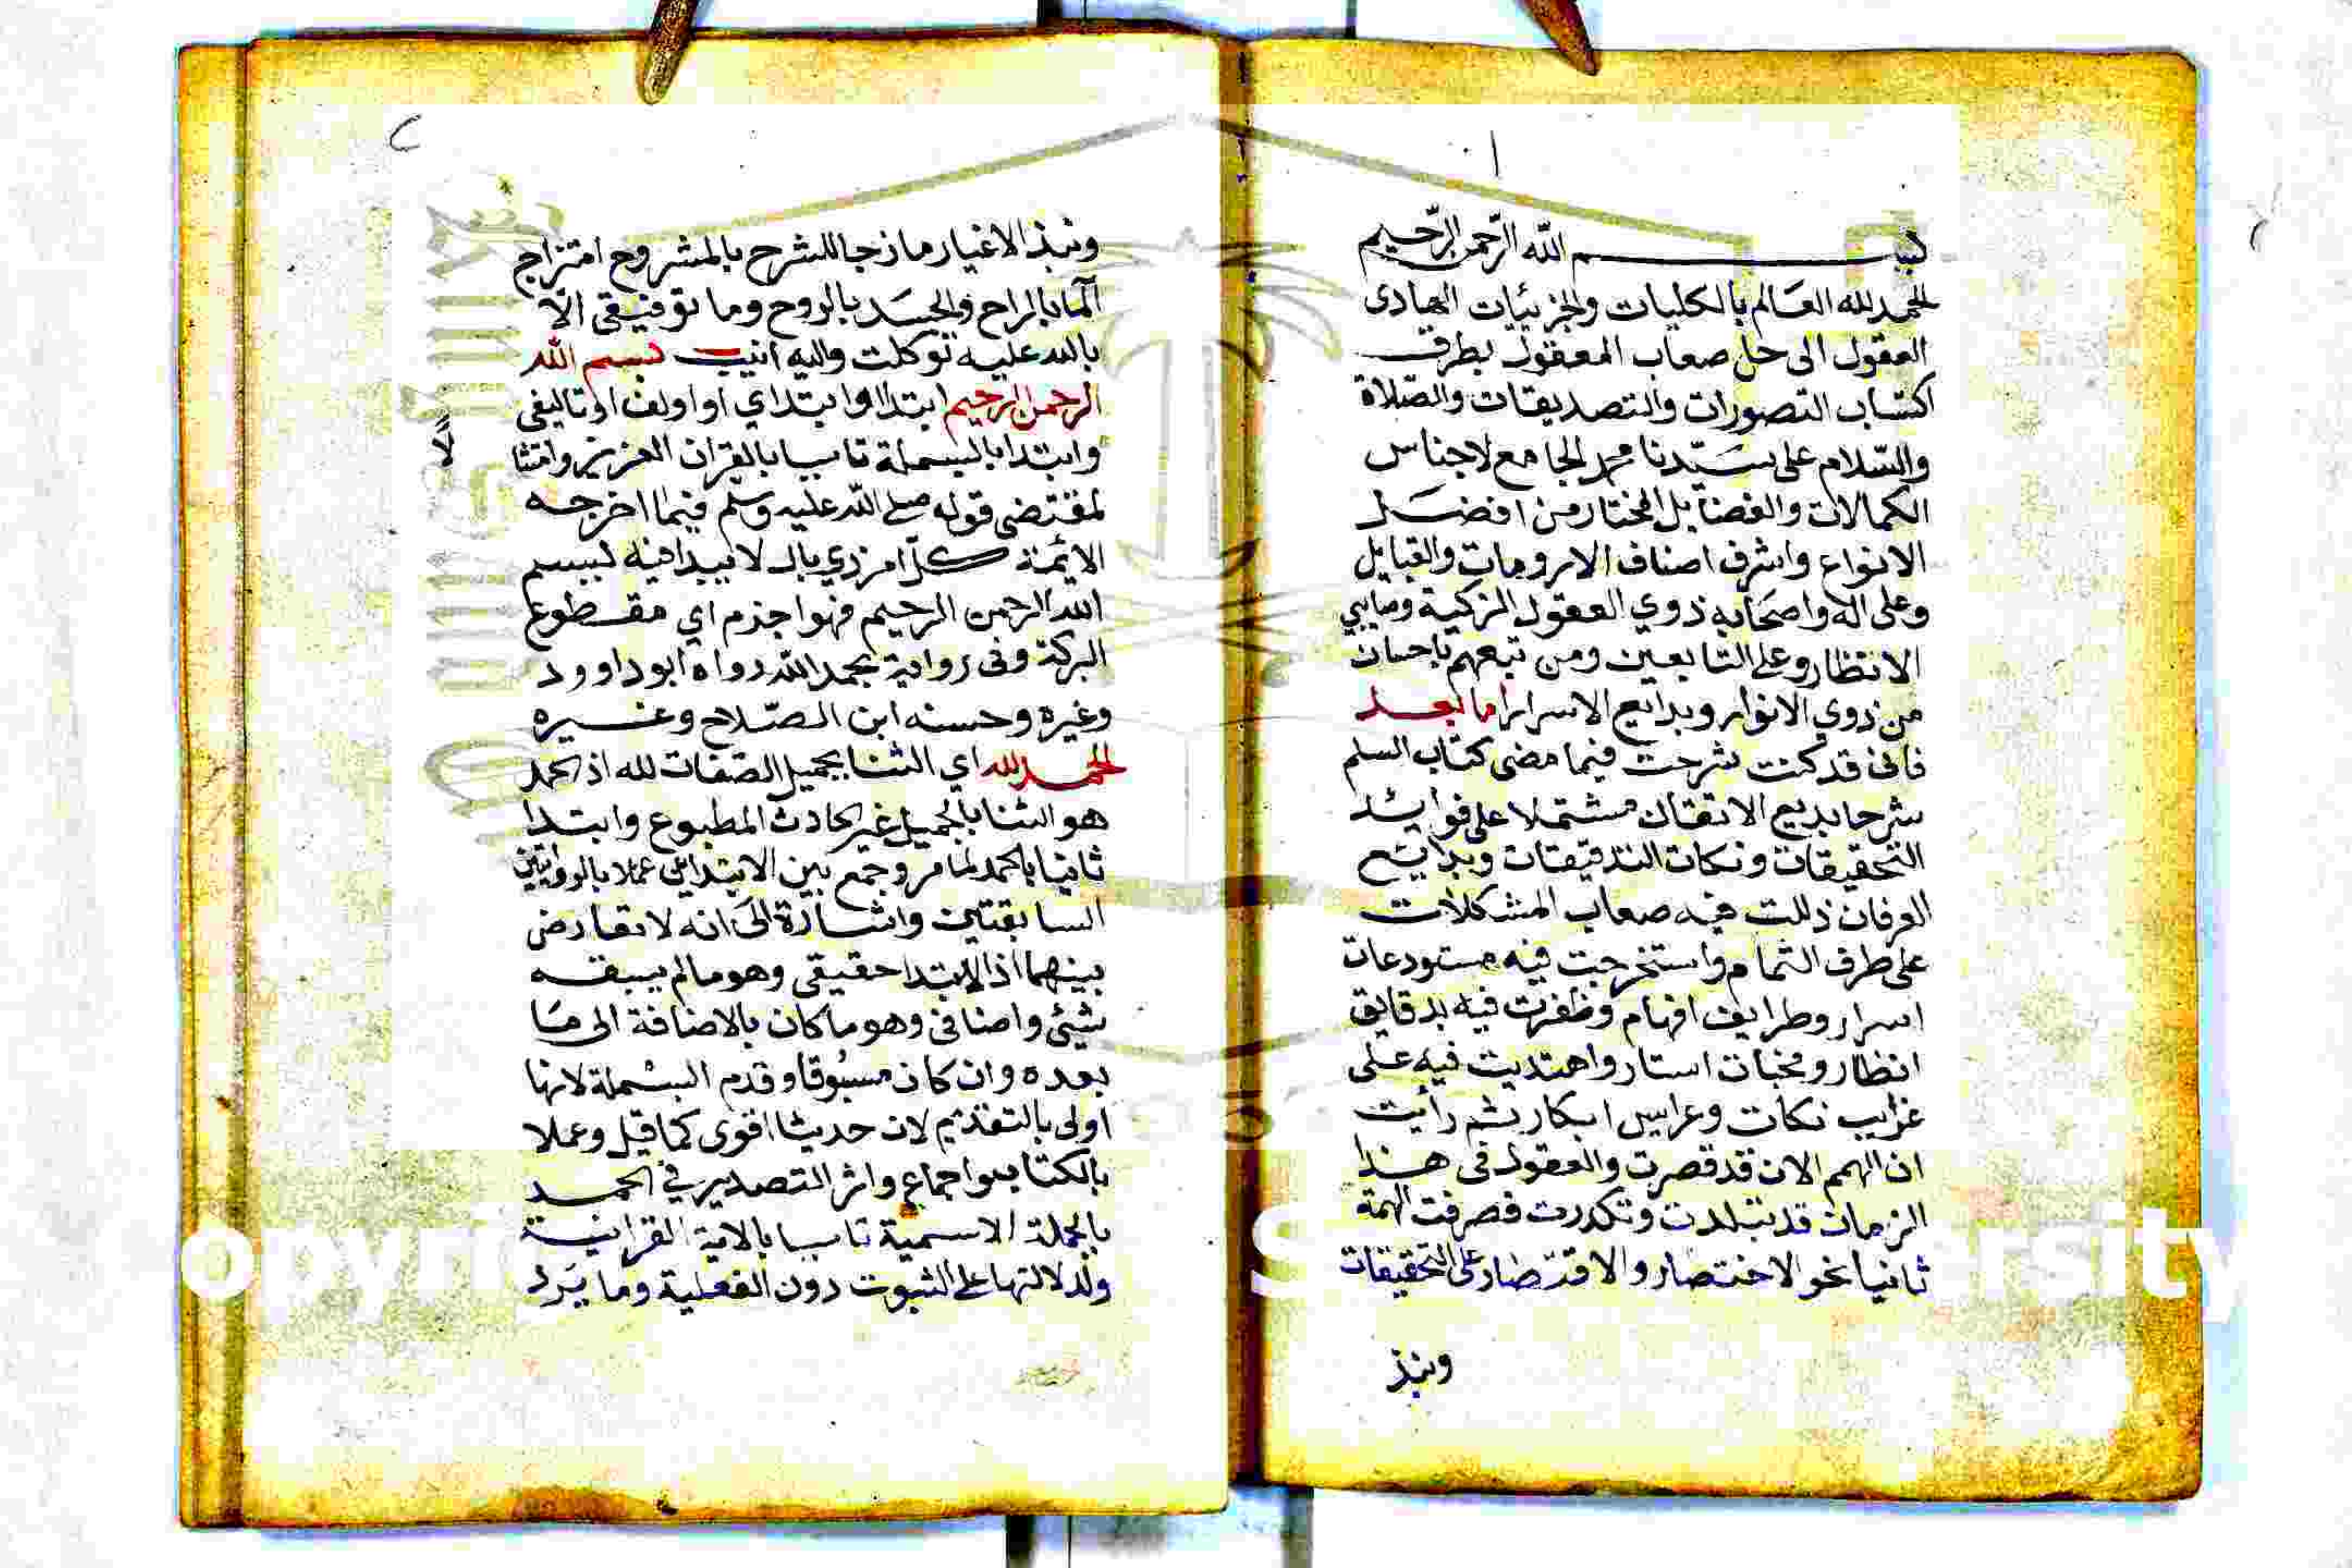 ١
بسم الله الرّحمن الرّحيم
الحمد لله العَالم بالكليات والجزئيات الهادى
العقول الى حل صعاب المعقول بطرق
اكتساب التصورات والتصديقات والصّلاة
والسّلام على سَيّدنا محمد الجامع لاجناس
الكمالات والفضايل المختار من افضَل
الانواع واشرف اصناف الارومات والقبايل
وعلى اله واصحَابه ذوي العقول الزكية
الانتظار وعلى التابعين ومن تبعهم باحسان
من ذوي الانوار وبدايع الاسرار اما بعد
فانى قد كنت شرحت فيما مضى كتاب السلم
شرحا بديع الاتقان مشتملا على فوائد
التحقيقات ونكات التدقيقات وبدايَع
العرفان ذللت فيه صعاب المشكلات
على طرف الثمام واستخرجت فيه مستودعات
اسرار وطرايف افهام وظفرت فيه بدقايق
انظار ومخبات استار واهتديت فيه على
غرايب نكات وعرايس ابكار ثم رأيت
ان الهمم الان قد قصرت والعقول فى هذا
الزمان قد تبلدت وتكدرت فصرفت الهمة
ثانيا نحو الاختصار والاقتصار على التحقيقات
ونبذ
ونبذ الاغيار مازجا للشرح بالمشروح امتزاج
الما بالراح والجسَد بالروح وما توفيقى الّا
بالله عليه توكلت واليه انيب بسم الله
الرحمن الرحيم ابتدا وابتداي او اولف او تاليفى
وابتدا بالبسملة تاسيا بالقران العزيز وامتثا
لا
لمقتضى قوله صلى الله عليه وسلم فيما اخرجه
الايمّة كل امر ذي بال لا يبدا فيه ببسم
الله الرحمن الرحيم فهو اجذم اي مقطوع
البركة وفى رواية بحمد الله رواه ابو داوود
وغيره وحسنه ابن الصّلاح وغيره
الحمد لله اي الثنا بجميل الصفات لله اذ الحمد
هو الثنا بالجميل غير الحادث المطبوع وابتدا
ثانيا بالحمد لما مر وجمع بين الابتداين عملا بالروايتين
السابقتين واشارة الى انه لا تعارض
بينهما اذ الابتدا حقيقى وهو مالم يسبقه
شيئ واضافى وهو ما كان بالاضافة الى مَا
بعده وان كان مسبوقا وقدم البسملة لانها
اولى بالتقديم لان حديثا اقوى كما قيل وعملا
بالكتاب واجماع واثر التصدير في الحمد
بالجملة الاسمية تاسيا بالاية القرانية
ولدلالتها على الثبوت دون الفعلية وما يَرد